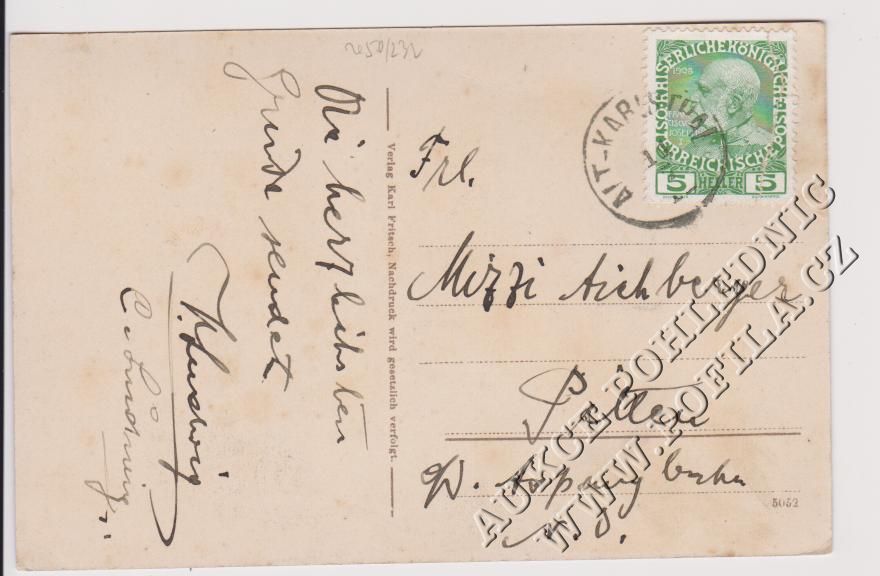 2250/232
Die herzlichsten
Grüße sendet
K. Ludwig
Verlag Karl Fritsch, Nachdruck wird gesetzlich verfolgt.
KAISERLICHE KÖNIGLICHE
ÖSTERREICHISCHE POST
1908
5 HELLER 5
ALT-KARLSTHAL
Frl.
Mizzi Aichberger
Pitten
a. Aspangbahn
N. Ö.
5052
AUKCE POHLEDNIC
WWW.POFILA.CZ